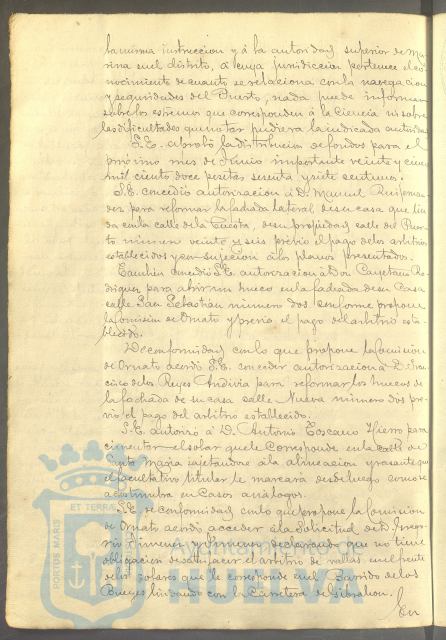 la misma instruccion y á la autoridad superior de Ma-
rina en el distrito, á cuya jurisdiccion pertenece el co-
nocimiento de cuanto se relaciona con la navegacion
y seguridades del Puerto, nada puede informar
sobre los estremos que corresponden á la ciencia ni sobre
las dificultades que notar pudiera la indicada autoridad.
S.E. aprobó la distribucion de fondos para el
próximo mes de Junio importante veinte y cinco
mil ciento doce pesetas sesenta y siete centimos.
S.E. concedió autorizacion á D. Manuel
para reformar la fachada lateral, de su casa que lin-
da con la calle de la Cuesta, de su propiedad, calle del Puer-
to número veinte y seis previo el pago de los arbitrios
establecidos y con sujecion á los planos presentados.
Tambien concedió S.E. autorizacion á Don Cayetano Ro-
driguez para abrir un hueco en la fachada de su Casa
calle San Sebastian número dos, conforme propone
la Comision de Ornato y previo el pago del arbitrio esta-
blecido.
De conformidad con lo que propone la Comision
de Ornato acordó S.E. conceder autorizacion á D. Fran-
cisco de los Reyes Andivia para reformar los huecos de
la fachada de su casa calle Nueva número dos pre-
vio el pago del arbitrio establecido.
S.E. autorizó á D. Antonio Toscano Hierro para
cimentar el solar que le corresponde en la calle de
Santa Maria sujetandose á la alineacion y rasante que
el facultativo titular le marcará desde luego como se
acostumbra en Casos análogos.
S.E. de conformidad con lo que propone la Comision
de Ornato acordó acceder á la Solicitud de D. Grego-
rio Jimenez y Jimenez declarando que no tiene
obligacion de satisfacer el arbitrio de vallas en el frente
de los solares que le corresponde en el Barrido de los
Bueyes lindando con la Carretera de Gibraleon.
En
PORTUS MARIS ET TERRAE
Ayuntamiento de
HUELVA